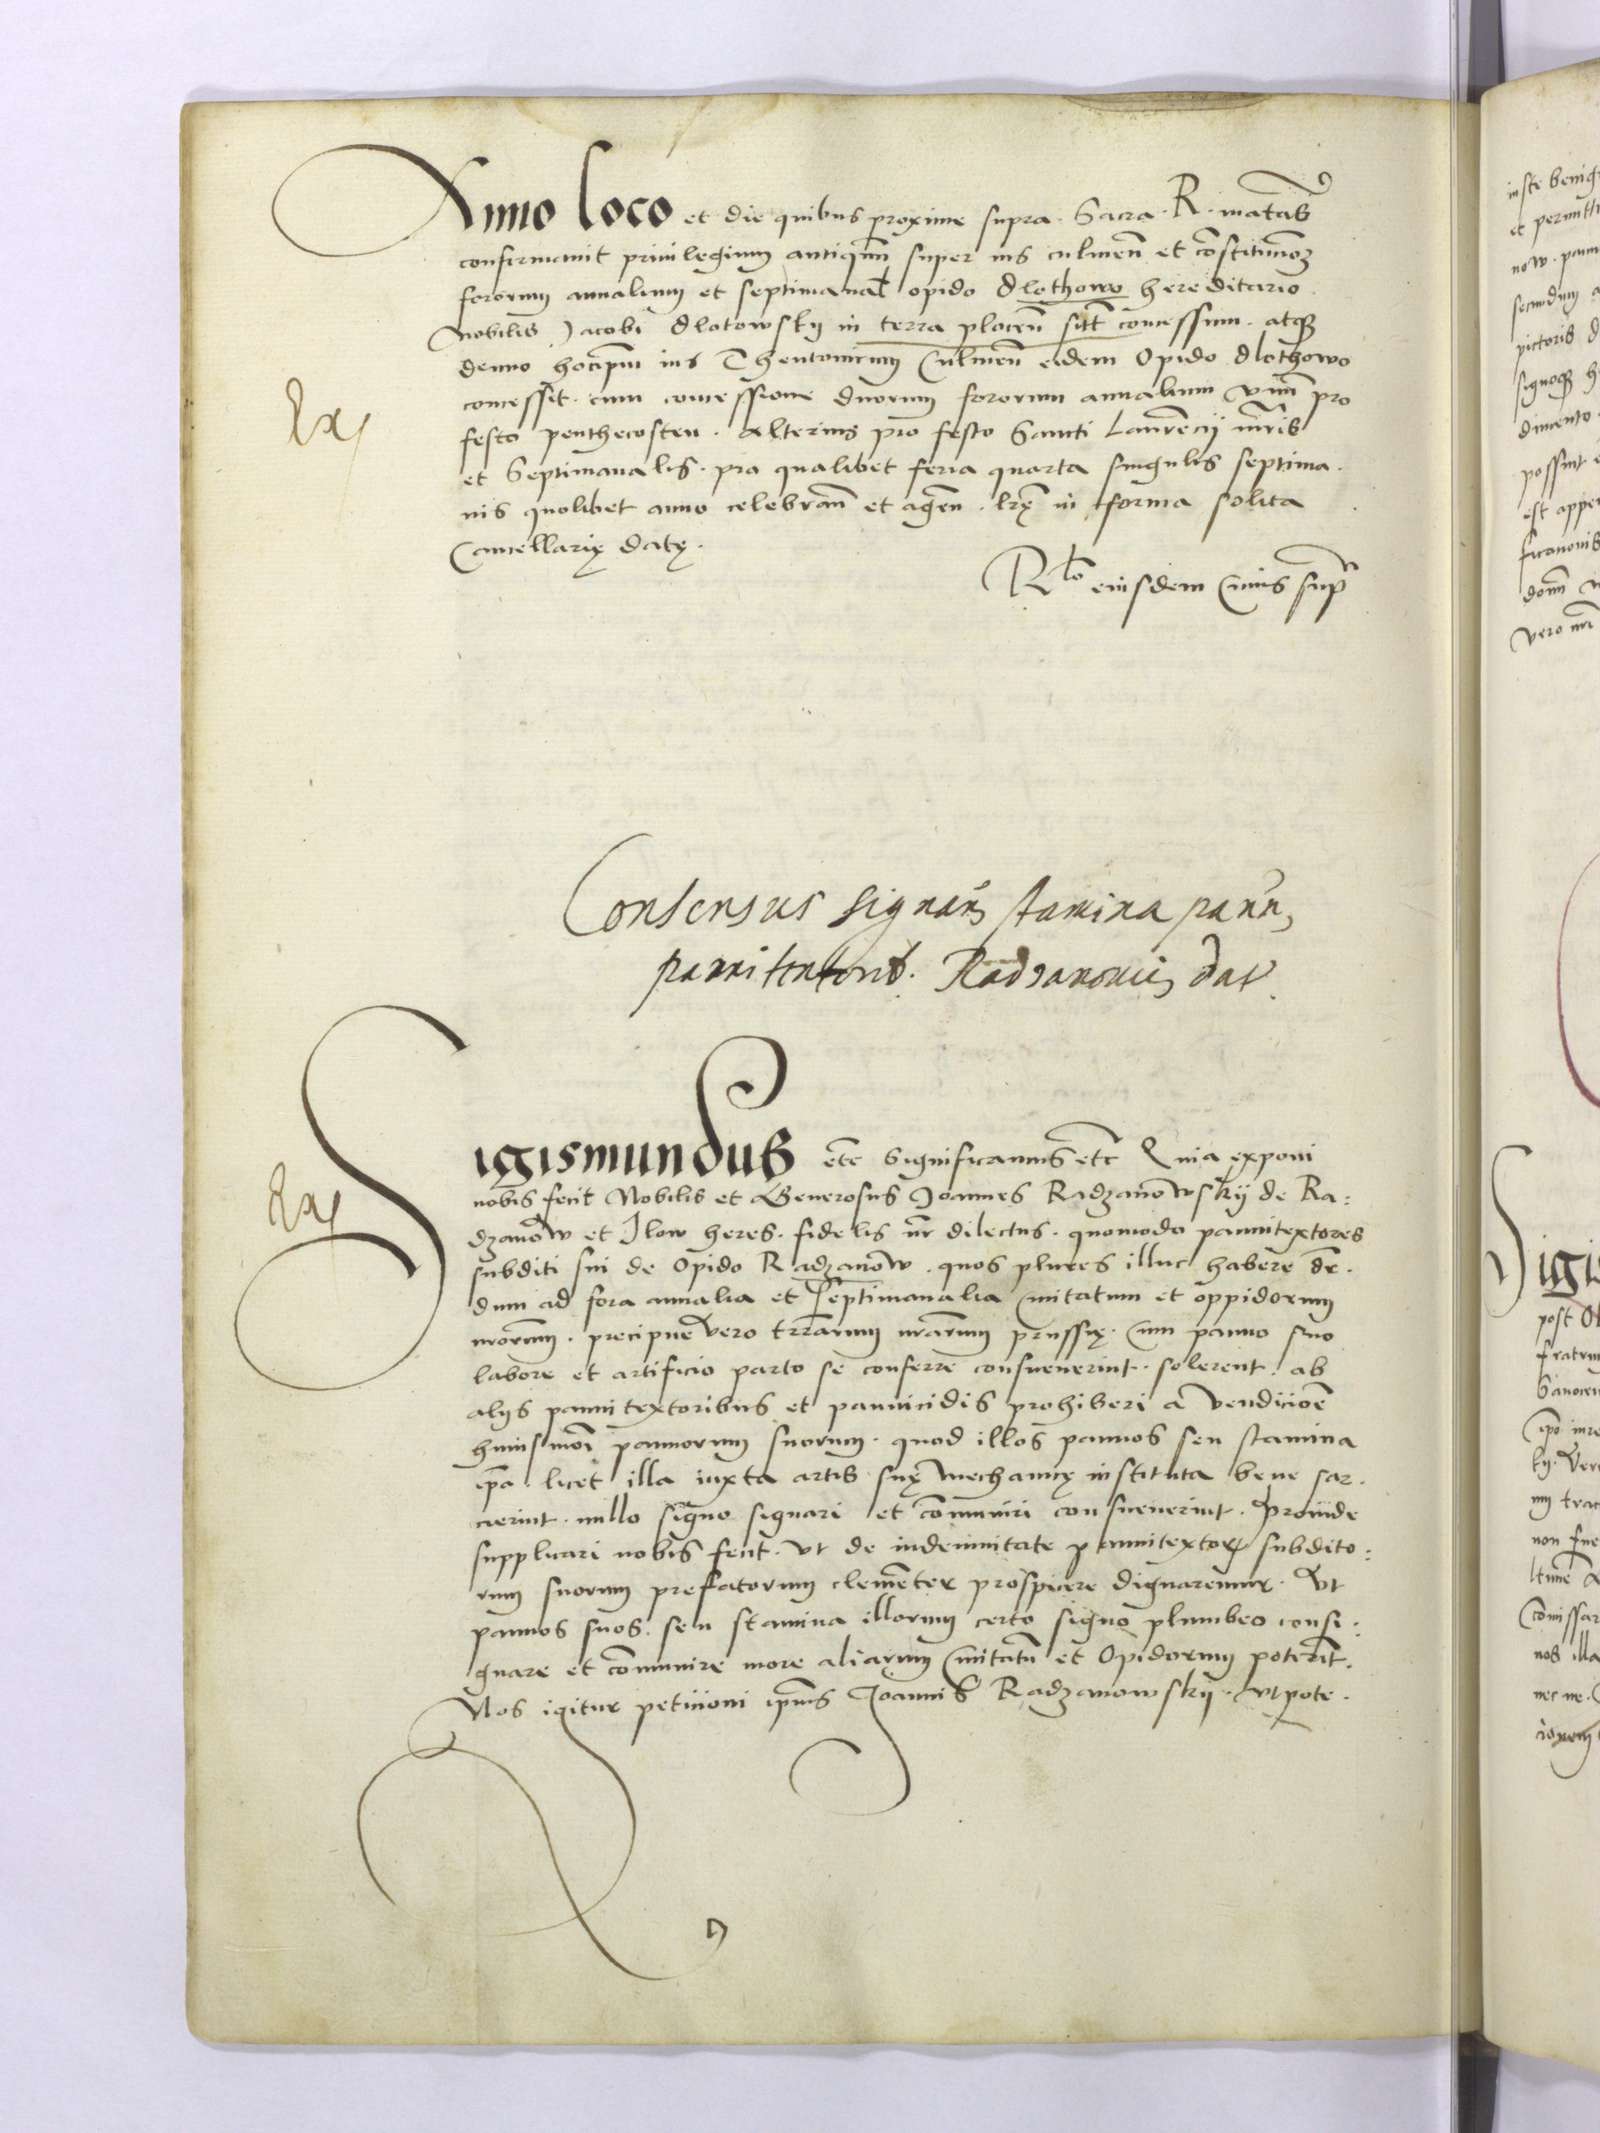 Anno loco et die quibus proxime supra. Sacra. R. matas
confirmavit privilegium antiqum super ius culmen et constitucionem
fororum annalium et septimanal opido dlothowo hereditario
Nobilis Jacobi dlotowsky in terra plocen sitt concessum. atque
denuo hocipsum ius Thentonicum Culmen eidem Opido dlothowo
concessit. cum concessione duorum fororum annalium unum pro
festo penthecosten. alterius pro festo Sancti Laurencij mris
et Septimanalis. pro qualibet feria quarta singulis septima.
nis quolibet anno celebran et agen. lrę in forma solita
Cancellarię datę.
Rlo eiusdem cuius supra
Ex
Consensus signan stamina pann
pannitextorib. Radzanoviens dat.
Sigismundus etc Significamus etc Quia exponi
nobis fecit Nobilis et Generosus Joannes Radzanowskij de Ra:
dzanow et Ilow heres. fidelis nr dilectus. quomodo pannitextores
subditi sui de Opido Radzanow. quos plures illuc habere dr.
dum ad fora annalia et septimanalia Civitatum et oppidorum
nrorum. precipue vero trrarum nrarum prussię. Cum panno suo
labore et artificio parto se conferre consueverint. solerent ab
alijs pannitextoribus et pannicidis prohiberi a vendicioe
huiusmoi pannorum suorum. quod illos pannos seu stamina
ipa licet illa iuxta artis suę mechanicę instituta bene sar.
cierint. nullo signo signari et comuniri consueverint. Proinde
supplicari nobis fecit. vt de indemnitate pannitextor subdito:
rum suorum prefatorum clementer prospicere dignaremur. vt
pannos suos. seu stamina illorum certo signo plumbeo consi.
gnare et comunire more aliarum Civitatu et Opidorum poterit.
Nos igitur peticioni ipius Joannis Radzanowskij. vtpote.
Ex